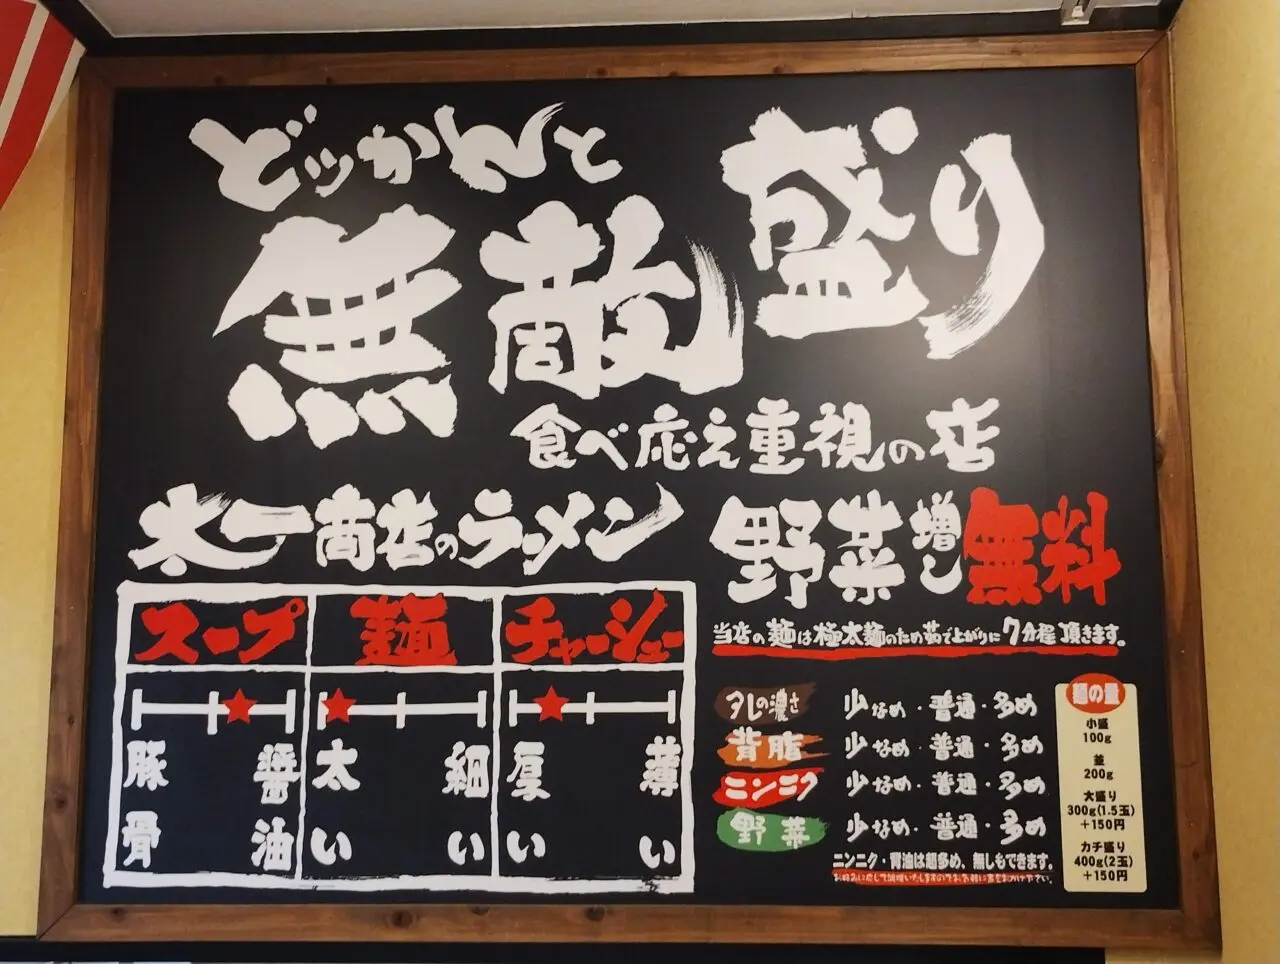 どッかんと
無敵盛り
食べ応え重視の店
太一商店のラーメン
スープ 麺 チャーシュー
豚骨 醤油 太い 細い 厚い 薄い
野菜増し無料
当店の麺は極太麺のため茹で上がりに7分程頂きます。
タレの濃さ 少なめ・普通・多め
背脂 少なめ・普通・多め
ニンニク 少なめ・普通・多め
野菜 少なめ・普通・多め
ニンニク・背油は超多め、無しもできます。
お好みに応じて調理いたしますのでお気軽に声をおかけ下さい。
麺の量
小盛
100g
並
200g
大盛り
300g(1.5玉)
+150円
カチ盛り
400g(2玉)
+150円